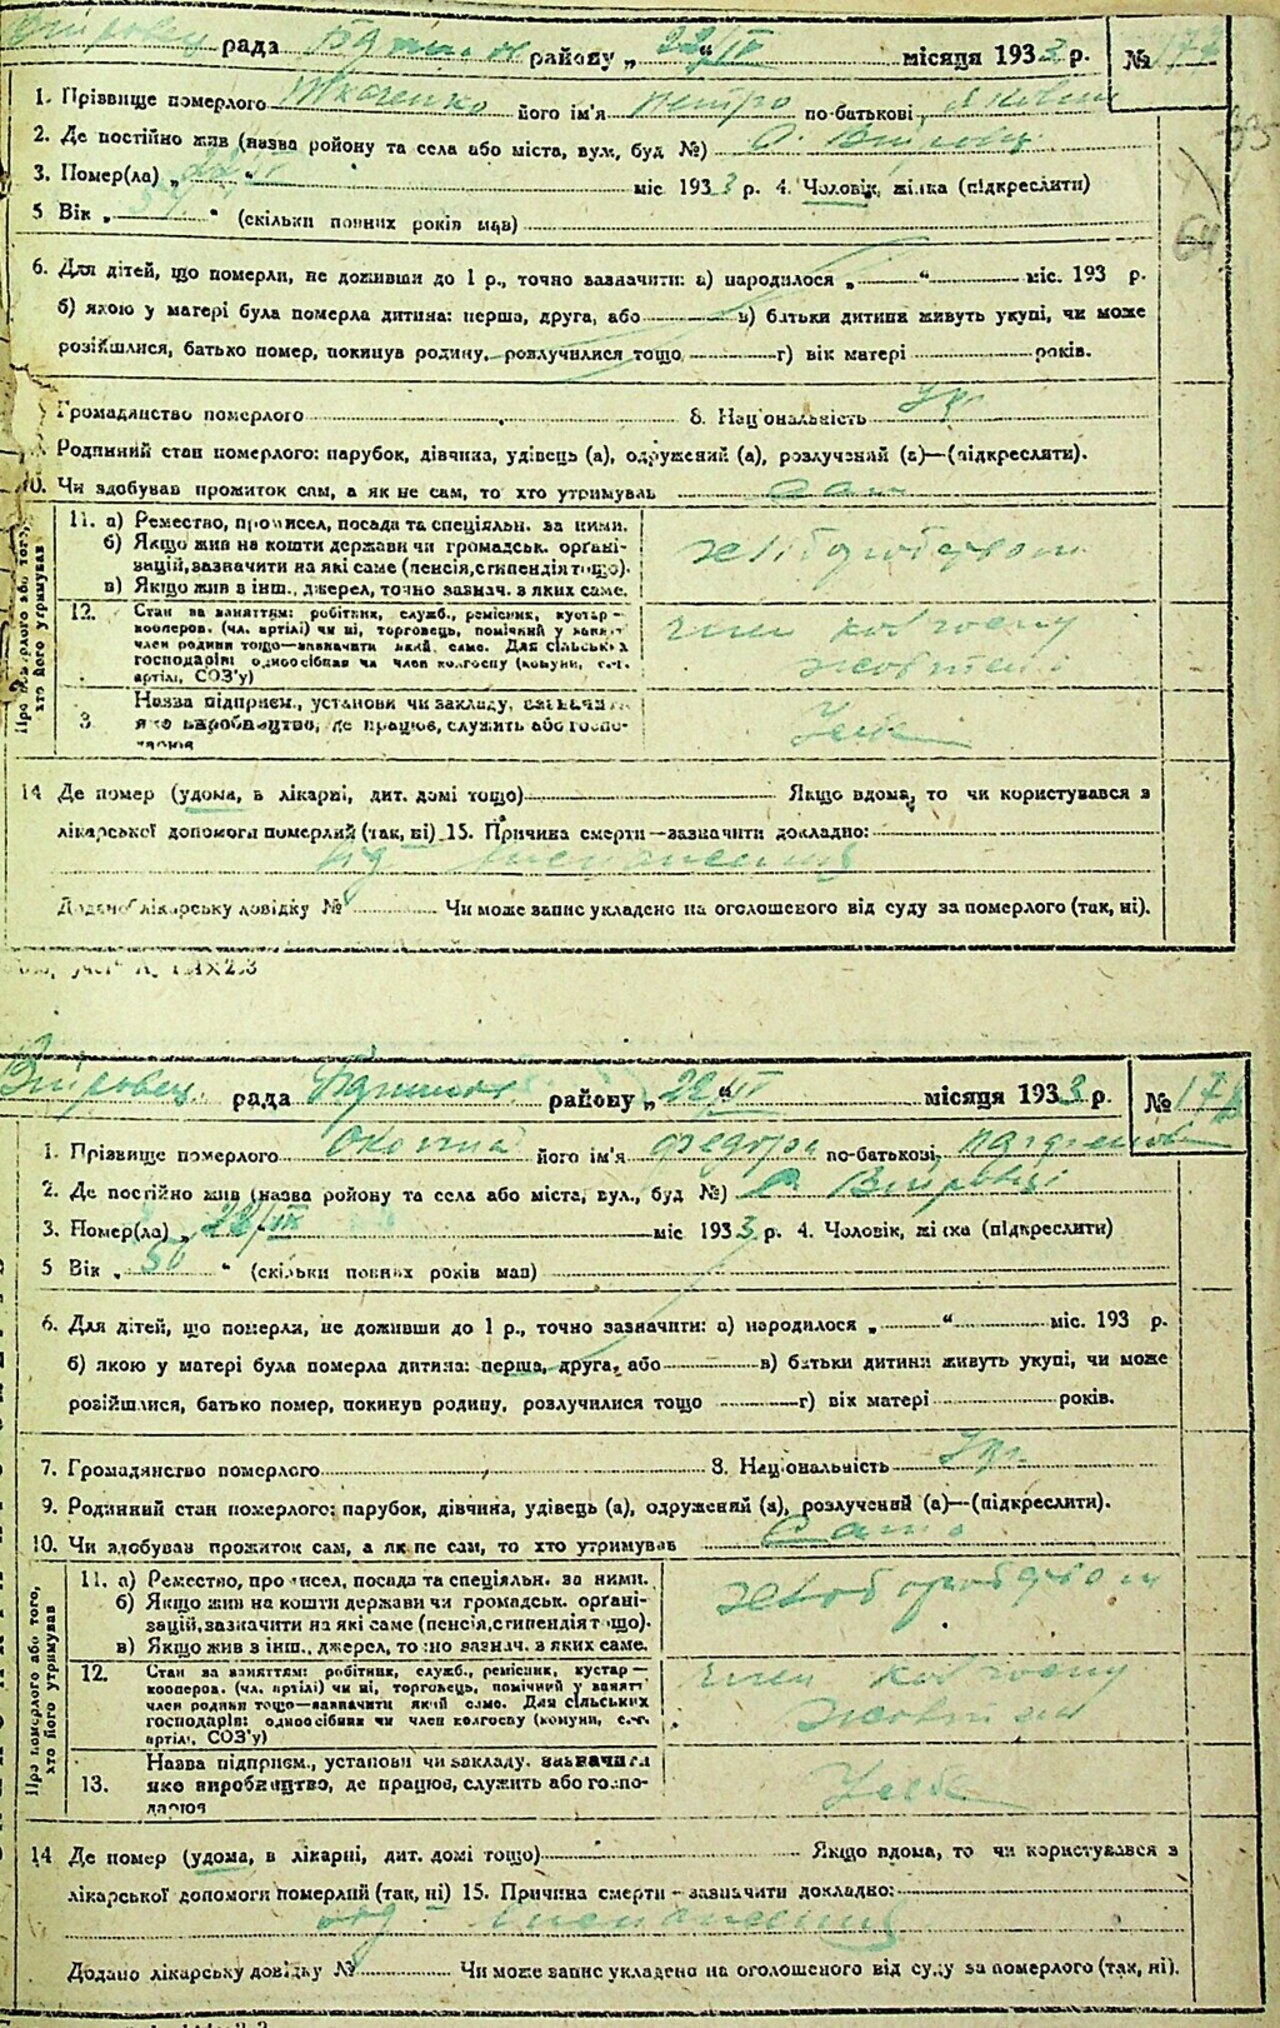 рада району „22/IV“ місяця 1933 р. № 177
1. Прізвище померлого Ткаченко його ім'я Петро по-батькові
2. Де постійно жив (назва району та села або міста, вул., буд №) с.
3. Помер(ла) „22/IV“ міс 1933 р. 4. Чоловік, жінка (підкреслити)
5 Вік „ “ (скільки повних років мав)
6. Для дітей, що померли, не доживши до 1 р., точно зазначити: а) народилося „ “ міс. 193 р.
б) якою у матері була померла дитина: перша, друга, або в) батьки дитини живуть укупі, чи може
розійшлися, батько помер, покинув родину, розлучилися тощо г) вік матері років.
Громадянство померлого 8. Національність Укр.
Родинний стан померлого: парубок, дівчина, удівець (а), одружений (а), розлучений (а)—(підкреслити).
10. Чи здобував прожиток сам, а як не сам, то хто утримував сам
Про померлого або того, хто його утримував
11. а) Ремество, промисел, посада та спеціяльн. за ними.
б) Якщо жив на кошти держави чи громадськ. органі-
зацій, зазначити на які саме (пенсія, стипендія тощо).
в) Якщо жив в інш., джерел, точно зазнач. в яких саме.
хлібороб
12. Стан за заняттям: робітник, служб., ремісник, кустар—
кооперов. (чл. артілі) чи ні, торговець, помічний у занятт
член родини тощо—зазначити який само. Для сільських
господарів: одноосібник чи член колгоспу (комуни, с.-г.
артілі, СОЗ'у)
член колгоспу
3 Назва підприєм., установи чи закладу, зазначити
яко виробництво, де працює, служить або госпо-
дарює
14 Де помер (удома, в лікарні, дит. домі тощо) Якщо вдома, то чи користувався з
лікарської допомоги померлий (так, ні) 15. Причина смерти—зазначити докладно:
від
Додано лікарську довідку № Чи може запис укладено на оголошеного від суду за померлого (так, ні).
рада району „22/IV“ місяця 1933 р. № 178
1. Прізвище померлого його ім'я Федора по-батькові
2. Де постійно жив (назва району та села або міста, вул., буд №) с.
3. Помер(ла) „22/IV міс 1933 р. 4. Чоловік, жінка (підкреслити)
5 Вік „50“ (скільки повних років мав)
6. Для дітей, що померли, не доживши до 1 р., точно зазначити: а) народилося „ “ міс. 193 р.
б) якою у матері була померла дитина: перша, друга, або в) батьки дитини живуть укупі, чи може
розійшлися, батько помер, покинув родину, розлучилися тощо г) вік матері років.
7. Громадянство померлого 8. Національність Укр.
9. Родинний стан померлого: парубок, дівчина, удівець (а), одружений (а), розлучений (а)—(підкреслити).
10. Чи здобував прожиток сам, а як не сам, то хто утримував сама
Про померлого або того, хто його утримував
11. а) Ремество, промисел, посада та спеціяльн. за ними.
б) Якщо жив на кошти держави чи громадськ. органі-
зацій, зазначити на які саме (пенсія, стипендія тощо).
в) Якщо жив з інш., джерел, точно зазнач. в яких саме.
12. Стан за заняттям: робітник, служб., ремісник, кустар—
кооперов. (чл. артілі) чи ні, торговець, помічний у занятт
член родини тощо—зазначити який само. Для сільських
господарів: одноосібник чи член колгоспу (комуни, с.-г.
артілі, СОЗ'у)
член колгоспу
13. Назва підприєм., установи чи закладу, зазначити
яко виробництво, де працює, служить або госпо-
дарює
14 Де помер (удома, в лікарні, дит. домі тощо) Якщо вдома, то чи користувався з
лікарської допомоги померлий (так, ні) 15. Причина смерти—зазначити докладно:
від
Додано лікарську довідку № Чи може запис укладено на оголошеного від суду за померлого (так, ні).